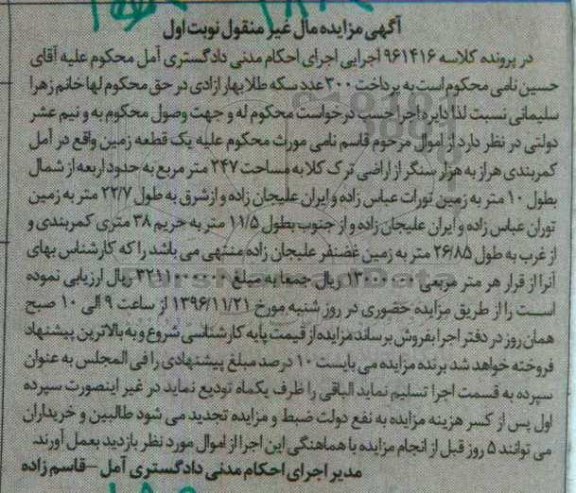 آگهی مزایده مال غیر منقول نوبت اول
در پرونده کلاسه ۹۶۱۴۱۶ اجرایی اجرای احکام مدنی دادگستری آمل محکوم علیه آقای
حسین نامی محکوم است به پرداخت ۳۰۰ عدد سکه طلا بهار ازادی در حق محکوم لها خانم زهرا
سلیمانی نسبت لذا دایره اجرا حسب درخواست محکوم له و جهت وصول محکوم به و نیم عشر
دولتی در نظر دارد از اموال مرحوم قاسم نامی مورث محکوم علیه یک قطعه زمین واقع در آمل
کمربندی هراز به هزار سنگر از اراضی ترک کلا به مساحت ۲۴۷ متر مربع به حدود اربعه از شمال
بطول ۱۰ متر به زمین تورات عباس زاده و ایران علیجان زاده و ازشرق به طول ۲۲/۷ متر به زمین
توران عباس زاده و ایران علیجان زاده و از جنوب بطول ۱۱/۵ متر به حریم ۳۸ متری کمربندی و
از غرب به طول ۲۶/۸۵ متر به زمین غضنفر علیجان زاده منتهی می باشد را که کارشناس بهای
آنرا از قرار هر متر مربعی ۱۳۰۰۰۰۰۰ ریال جمعا به مبلغ ۳۲۱۱۰۰۰۰۰۰ ریال ارزیابی نموده
است را از طریق مزایده حضوری در روز شنبه مورخ ۱۳۹۶/۱۱/۲۱ از ساعت ۹ الی ۱۰ صبح
همان روز در دفتر اجرا بفروش برساند مزایده از قیمت پایه کارشناسی شروع و به بالاترین پیشنهاد
فروخته خواهد شد برنده مزایده می بایست ۱۰ درصد مبلغ پیشنهادی را فی المجلس به عنوان
سپرده به قسمت اجرا تسلیم نماید الباقی را ظرف یکماه تودیع نماید در غیر اینصورت سپرده
اول پس از کسر هزینه مزایده به نفع دولت ضبط و مزایده تجدید می شود طالبین و خریداران
می توانند ۵ روز قبل از انجام مزایده با هماهنگی این اجرا از اموال مورد نظر بازدید بعمل آورند.
مدیر اجرای احکام مدنی دادگستری آمل - قاسم زاده